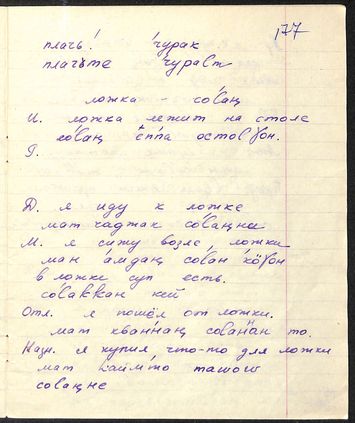 177
плачь! чурак
плачьте чуралт
ложка - со̄ваӊ
И. ложка лежит на столе
со̄ваӊ ӭппа остолɣон.
Р.
Д. я иду к ложке
мат чаджак со̄ваӊни
М. я сижу возле ложки
ман а̄мдаӊ со̄ван кӧɣон
в ложке суп есть.
со̄ваккан кей
Отл. я пошёл от ложки.
мат кваннаӊ сованнан то.
Назн. я купил что-то для ложки
мат таймто ташош
соваӊне